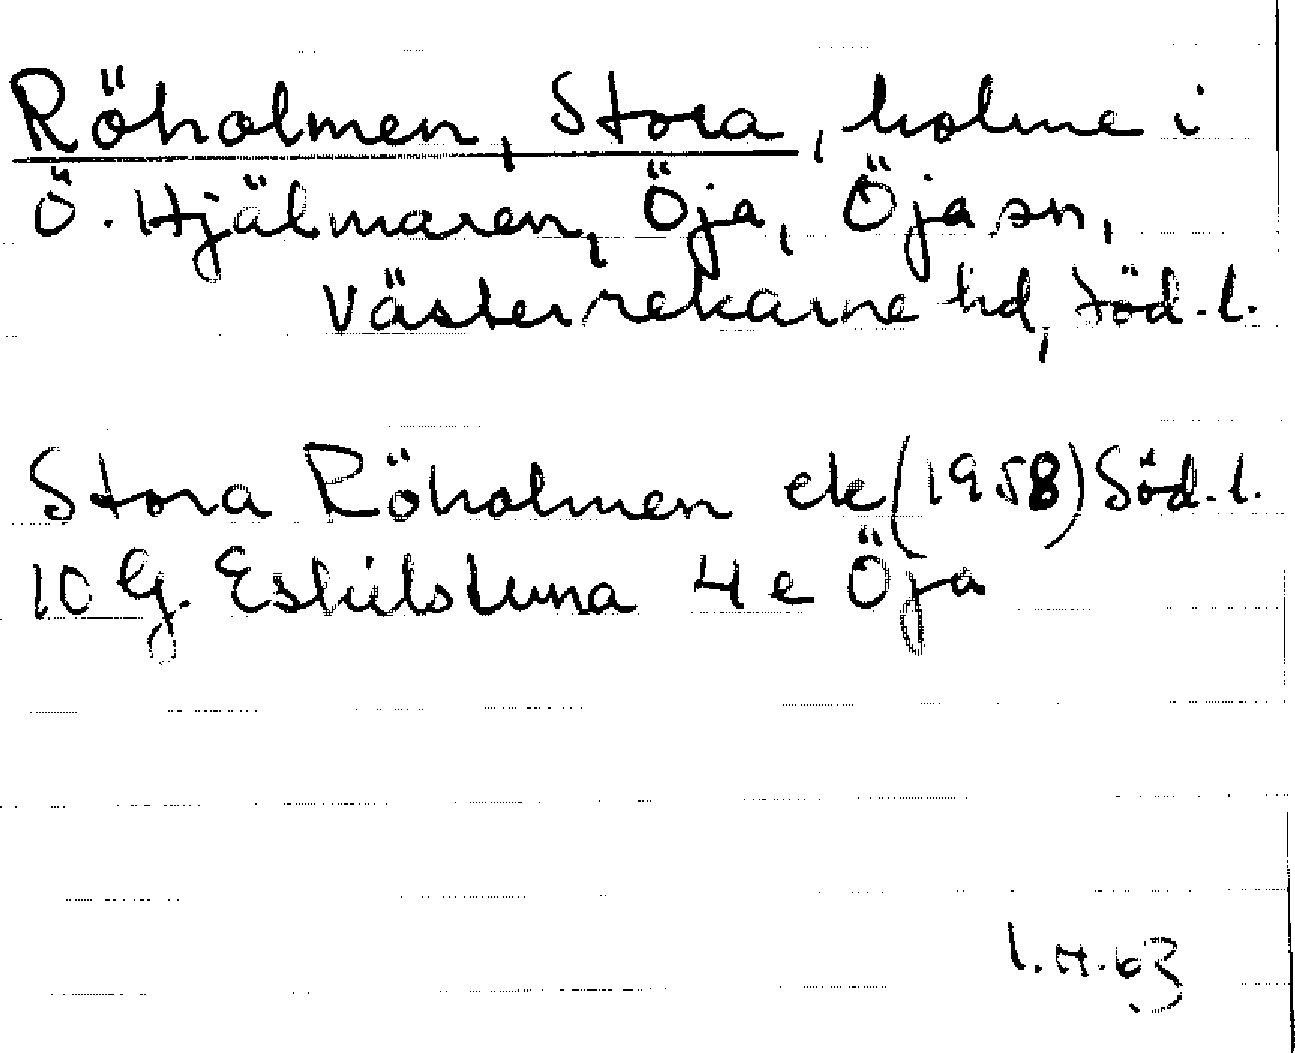 Röholmen, Stora, holme i
Ö. Hjälmaren, Öja, Öja sn,
Västerrekarne hd, Söd. l.
Stora Röholmen ek (1958) Söd. l.
10 G. Eskilstuna 4 e Öja
I.H.63